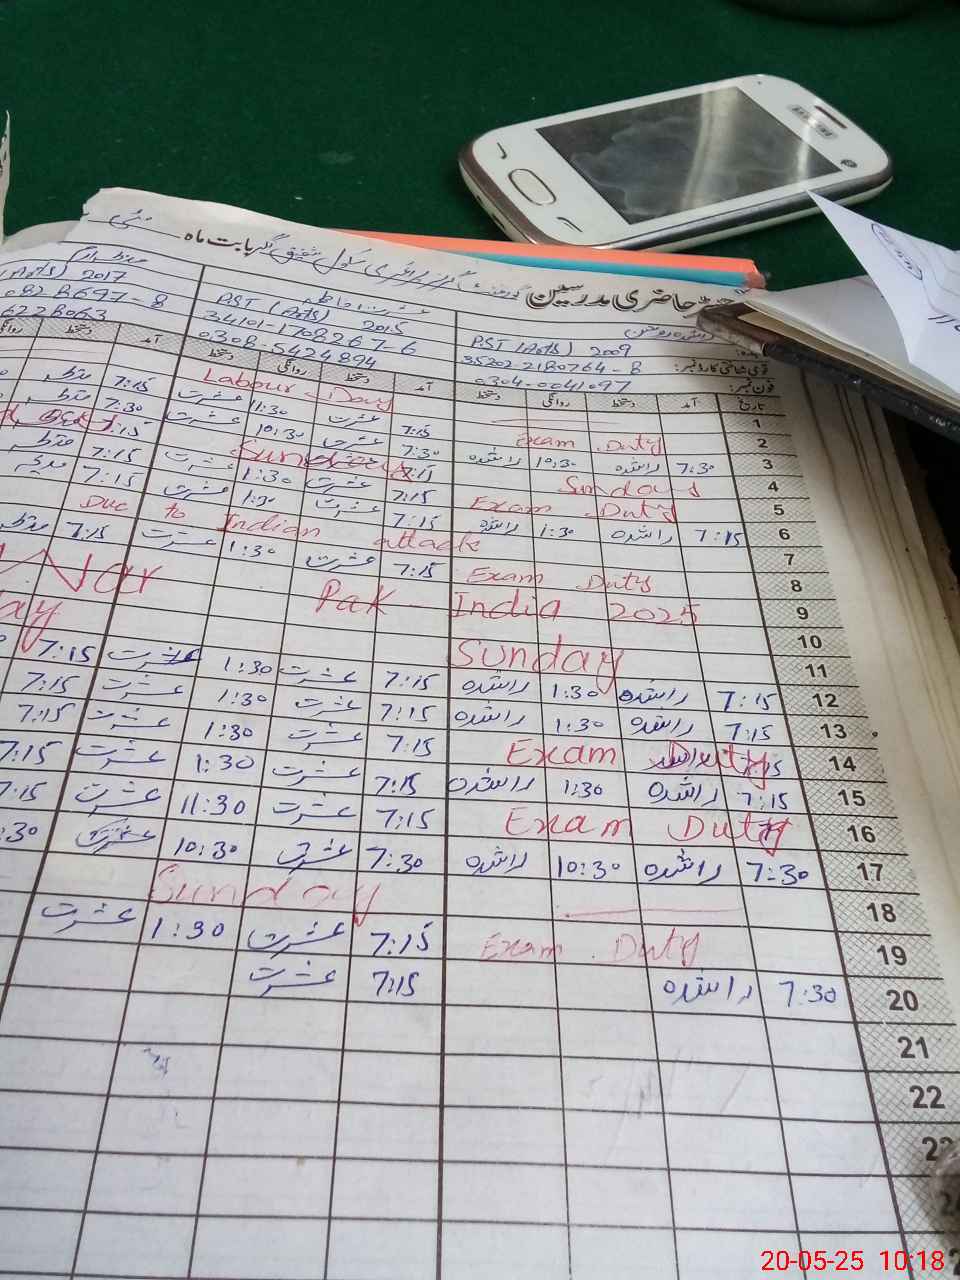 حاضری مدرسین گورنمنٹ گرلز پرائمری سکول شفیق آباد بابت ماہ مئی
PST (Arts) 2009 PST (Arts) 2015 (Arts) 2017
قومی شناختی کارڈ نمبر: 35202-2180764-8 34101-1708267-6 082B697-8
فون نمبر: 0304-0041097 0308-5424894 6228063
تاریخ آمد دستخط روانگی دستخط آمد دستخط روانگی دستخط آمد دستخط روانگی
1 Labour Day
2 Exam Duty 7:15 عشرت 11:30 عشرت 7:15
3 7:30 راشدہ 10:30 راشدہ 7:30 عشرت 10:30 عشرت 7:30
4 Sunday Sunday
5 Exam Duty 7:15 عشرت 1:30 عشرت 7:15
6 7:15 راشدہ 1:30 راشدہ 7:15 عشرت 1:30 عشرت 7:15
7 Due to Indian attack
8 Exam Duty 7:15 عشرت 1:30 عشرت 7:15
9 Pak - India 2025 War
10
11 Sunday
12 7:15 راشدہ 1:30 راشدہ 7:15 عشرت 1:30 عشرت 7:15
13 7:15 راشدہ 1:30 راشدہ 7:15 عشرت 1:30 عشرت 7:15
14 Exam Duty 7:15 عشرت 1:30 عشرت 7:15
15 7:15 راشدہ 1:30 راشدہ 7:15 عشرت 1:30 عشرت 7:15
16 Exam Duty 7:15 عشرت 11:30 عشرت 7:15
17 7:30 راشدہ 10:30 راشدہ 7:30 عشرت 10:30 عشرت :30
18 Sunday
19 Exam Duty 7:15 عشرت 1:30 عشرت
20 7:30 راشدہ 7:15 عشرت
21
22
23
SAMSUNG
20-05-25 10:18